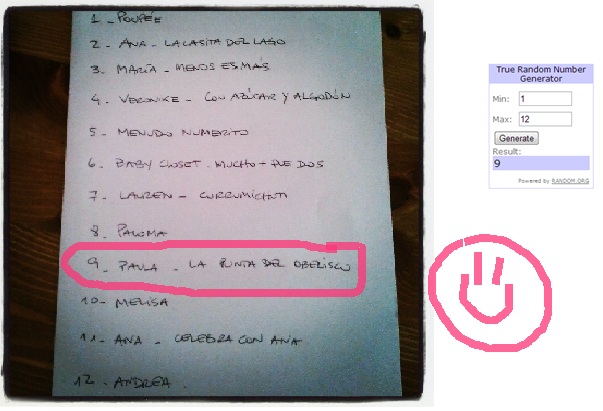 1 - POUPÉE
2 - ANA - LA CASITA DEL LAGO
3 - MARÍA - MENOS ES MÁS
4 - VERONIKE - CON AZÚCAR Y ALGODÓN
5 - MENUDO NUMERITO
6 - BABY CLOSET - MUCHO + QUE DOS
7 - LAUREN - CURRUMICHITI
8 - PALOMA
9 - PAULA - LA PUNTA DEL OBELISCO
10 - MELISA
11 - ANA - CELEBRA CON ANA
12 - ANDREA.
True Random Number
Generator
Min: 1
Max: 12
Generate
Result:
9
Powered by RANDOM.ORG